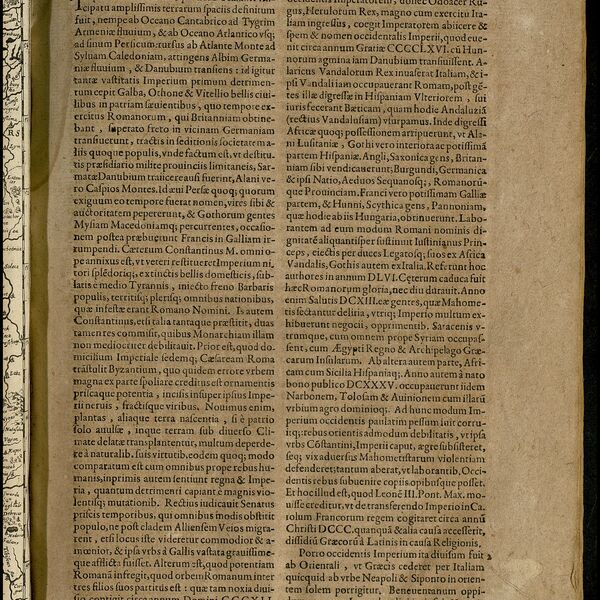 cipatu amplissimis terrarum spaciis definitum
fuit, nempe ab Oceano Cantabrico ad Tygrim
Armeniæ fluuium, & ab Oceano Atlantico vsq;
ad sinum Persicum: rursus ab Atlante Monte ad
Syluam Caledoniam, attingens Albim Germa-
niæ fluuium, & Danubium transiens: id igitur
tantæ vastitatis Imperium primum detrimen-
tum cepit Galba, Othone & Vitellio bellis ciui-
libus in patriam sæuientibus, quo tempore ex-
ercitus Romanorum, qui Britanniam obtine-
bant, superato freto in vicinam Germaniam
transuerunt, tractis in seditionis societatem a-
liis quoque populis, vnde factum est, vt destitu-
tis præsidiario milite prouinciis limitaneis, Sar-
matæ Danubium traiicere ausi fuerint, Alani ve-
ro Caspios Montes. Id æui Persæ quoq; quorum
exiguum eo tempore fuerat nomen, vires sibi &
auctoritatem pepererunt, & Gothorum gentes
Mysiam Macedoniamq; percurrentes, occasio-
nem postea præbuerunt Francis in Galliam ir-
rumpendi. Cæterum Constantinus M. omni o-
pe annixus est, vt veteri restitueret Imperium ni-
tori splendoriq;, extinctis bellis domesticis, sub-
latis e medio Tyrannis, iniecto freno Barbaris
populis, territisq; plerisq; omnibus nationibus,
quæ infestæ erant Romano Nomini. Is autem
Constantinus, etsi talia tantaque præstitit, duas
tamen res commisit, quibus Monarchiam illam
non mediocriter debilitauit. Prior est, quod do-
micilium Imperiale sedemq; Cæsaream Roma
trāstulit Byzantium, quo quidem errore vrbem
magna ex parte spoliare creditus est ornamentis
priscaque potentia, incisis insuper ipsius Impe-
rii neruis, fractisque viribus. Nouimus enim,
plantas, aliaque terra nascentia, si è patrio
solo auulsæ, inque terram sub diuerso Cli-
mate delatæ transplantentur, multum deperde-
re à naturalib. suis virtutib. eodem quoq; modo
comparatum est cum omnibus prope rebus hu-
manis, inprimis autem sentiunt regna & Impe-
ria, quantum detrimenti capiant è magnis vio-
lentisq; mutationib. Rectius iudicauit Senatus
priscis temporibus, qui omnibus modis obstitit
populo, ne post cladem Alliensem Veios migra-
rent, etsi locus iste videretur commodior & a-
mœnior, & ipsa vrbs à Gallis vastata grauissime-
que afflicta fuisset. Alterum est, quod potentiam
Romanā infregit, quod orbem Romanum inter
tres filios suos partitus est: quæ tam noxia diui-
sio contigit circa annum Domini CCCXLI.
Occidentis Imperium, donec Odoacer Ru-
gus, Herulorum Rex, magno cum exercitu Ita-
liam ingressus, coegit Imperatorem abiicere &
spem & nomen occidentalis Imperii, quod eue-
nit circa annum Gratiæ CCCCLXVI. cū Hun-
norum agmina iam Danubium transiuissent. A-
laricus Vandalorum Rex inuaserat Italiam, & i-
psi Vandali iam occupauerant Romam, post gē-
tes illæ digressæ in Hispaniam Vlteriorem, sui
iuris fecerant Bæticam, quam hodie Andaluziā
(rectius Vandalusiam) vsurpamus. Inde digressi
Africæ quoq; possessionem arripuerunt, vt Ala-
ni Lusitaniæ, Gothi vero interiora ac potissimā
partem Hispaniæ. Angli, Saxonica gens, Britan-
niam sibi vendicauerunt; Burgundi, Germanica
& ipsi Natio, Aeduos Sequanosq;, Romanorū-
que Prouinciam. Franci vero potissimam Galliæ
partem, & Hunni, Scythica gens, Pannoniam,
quæ hodie ab iis Hungaria, obtinuerunt. Labo-
rantem ad eum modum Romani nominis di-
gnitatē aliquantisper sustinuit Iustinianus Prin-
ceps, eiectis per duces Legatosq; suos ex Africa
Vandalis, Gothis autem ex Italia. Referunt hoc
authores in annum DLVI. Ceterum caduca fuit
hæc Romanorum gloria, nec diu durauit. Anno
enim Salutis DCXIII. eæ gentes, quæ Mahome-
tis sectantur deliria, vtriq; Imperio multum ex-
hibuerunt negocii, opprimentib. Saracenis v-
trumque, cum omnem prope Syriam occupas-
sent, cum Ægypti Regno & Archipelago Græ-
carum Insularum. Ab altera autem parte, Afri-
cam cum Sicilia Hispaniaq;. Anno autem à nato
bono publico DCXXXV. occupauerunt iidem
Narbonem, Tolosam & Auinionem cum illarū
vrbium agro dominioq;. Ad hunc modum Im-
perium occidentis paulatim pessum iuit corru-
itq;: rebus orientis admodum debilitatis, vt ipsa
vrbs Cōstantini, Imperii caput, ægre subsisteret,
seq; vix aduersus Mahometistarum violentiam
defenderet; tantum aberat, vt laborantib. Occi-
dentis rebus subuenire copiis opibusque posset.
Et hoc illud est, quod Leonē III. Pont. Max. mo-
uisse creditur, vt de transferendo Imperio in Ca-
rolum Francorum regem cogitaret circa annū
Christi DCCC. quanquā & alia causa accesserit,
dissidiū Græcorū à Latinis in causa Religionis.
Porro occidentis Imperium ita diuisum fuit
ab Orientali, vt Græcis cederet per Italiam
quicquid ab vrbe Neapoli & Siponto in orien-
tem solem porrigitur, Beneuentanum oppi-